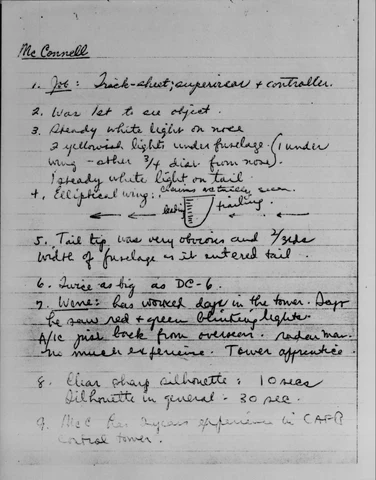 Mc Connell
1. Job: Track-sheet; supervisor + controller.
2. Was 1st to see object.
3. Steady white light on nose
2 yellowish lights under fuselage (1 under
wing - other 3/4 dist from nose).
1 steady white light on tail
4. Elliptical wing:
leading trailing.
5. Tail tip was very obvious and 2/3rds
width of fuselage as it entered tail.
6. Twice as big as DC-6.
7. has worked days in the tower. Says
he saw red + green blinking lights.
A/C just back from overseas. radar man.
no much experience. Tower apprentice.
8. Clear sharp silhouette: 10 secs
Silhouette in general - 30 sec.
9. McC has years experience in CAFB
control tower.